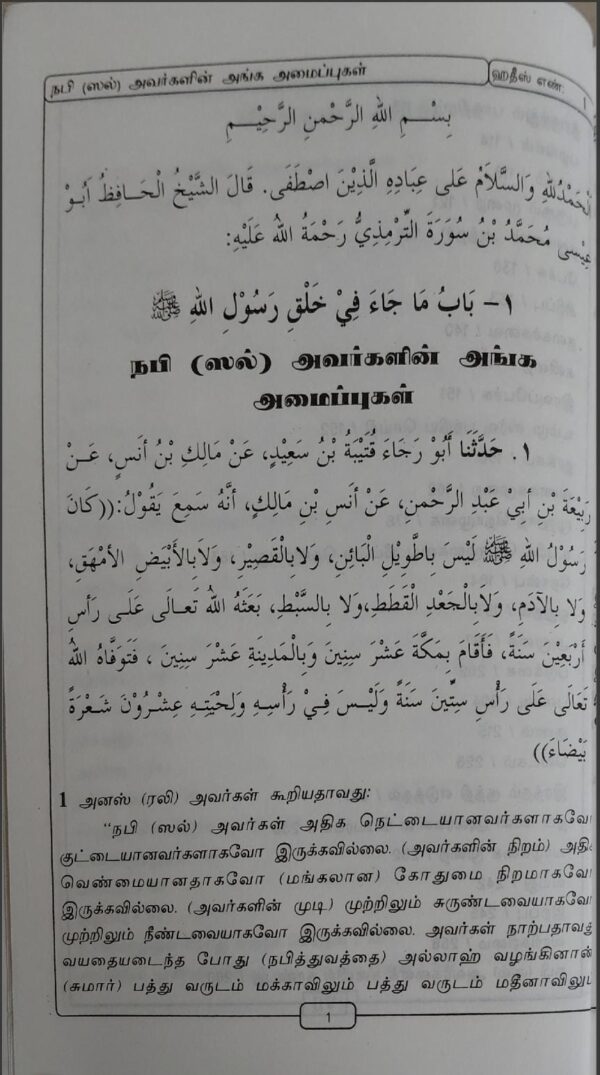 நபி (ஸல்) அவர்களின் அங்க அமைப்புகள்
ஹதீஸ் எண்: 1
بِسْـــمِ اللهِ الرَّحْمنِ الرَّحِيْــمِ
الْحَمْدُللهِ وَالسَّلاَمُ عَلى عِبَادِهِ الَّذِيْنَ اصْطَفَى. قَالَ الشَّيْخُ الْحَـافِظُ أَبُـوْ
عِيْسى مُحَمَّدُ بْنُ سُوْرَةَ التِّرْمِذِيُّ رَحْمَةُ اللهُ عَلَيْهِ:
١- بَابُ مَا جَاءَ فِيْ خَلْقِ رَسُوْلِ اللهِ ﷺ
நபி (ஸல்) அவர்களின் அங்க
அமைப்புகள்
١. حَدَّثَنَا أَبُوْ رَجَاءَ قُتَيْبَةُ بْنُ سَعِيْدٍ، عَنْ مَالِكِ بْنُ أَنَسٍ، عَـنْ
رَبِيْعَةَ بْنِ أَبِيْ عَبْدِ الرَّحْمنِ، عَنْ أَنَسِ بْنِ مَالِكٍ، أَنَّهُ سَمِعَ يَقُوْلُ:((كَانَ
رَسُوْلُ اللهِ ﷺ لَيْسَ بِاطَّوِيْلِ الْبَائِنِ، وَلاَبِالْقَصِيْرِ، وَلاَبِالأَبْيَضِ الأَمْهَقِ،
وَلاَ بِالآدَمِ، وَلاَبِالْجَعْدِ الْقَطَطِ،وَلاَ بِالسَّبْطِ، بَعَثَهُ اللهُ تَعـالَى عَلَـى رَأْسِ
أَرْبَعِيْنَ سَنَةً، فَأَقَامَ بِمَكَّةَ عَشْرَ سِنِينَ وَبِالْمَدِيْنَةِ عَشْرَ سِنِينَ ، فَتَوَفَّاهُ اللهُ
تَعَالَى عَلَى رَأْسِ سِتِّينَ سَنَةً وَلَيْـسَ فِـيْ رَأْسِـهِ وَلِحْيَتِـهِ عِشْـرُوْنَ شَـعْرَةً
بَيْضَاءَ))
1 அனஸ் (ரலி) அவர்கள் கூறியதாவது:
"நபி (ஸல்) அவர்கள் அதிக நெட்டையானவர்களாகவோ
குட்டையானவர்களாகவோ இருக்கவில்லை. (அவர்களின் நிறம்) அதிக
வெண்மையானதாகவோ (மங்கலான) கோதுமை நிறமாகவோ
இருக்கவில்லை. (அவர்களின் முடி) முற்றிலும் சுருண்டவையாகவோ
முற்றிலும் நீண்டவையாகவோ இருக்கவில்லை. அவர்கள் நாற்பதாவது
வயதையடைந்த போது (நபித்துவத்தை) அல்லாஹ் வழங்கினான்
(சுமார்) பத்து வருடம் மக்காவிலும் பத்து வருடம் மதீனாவிலும்
1